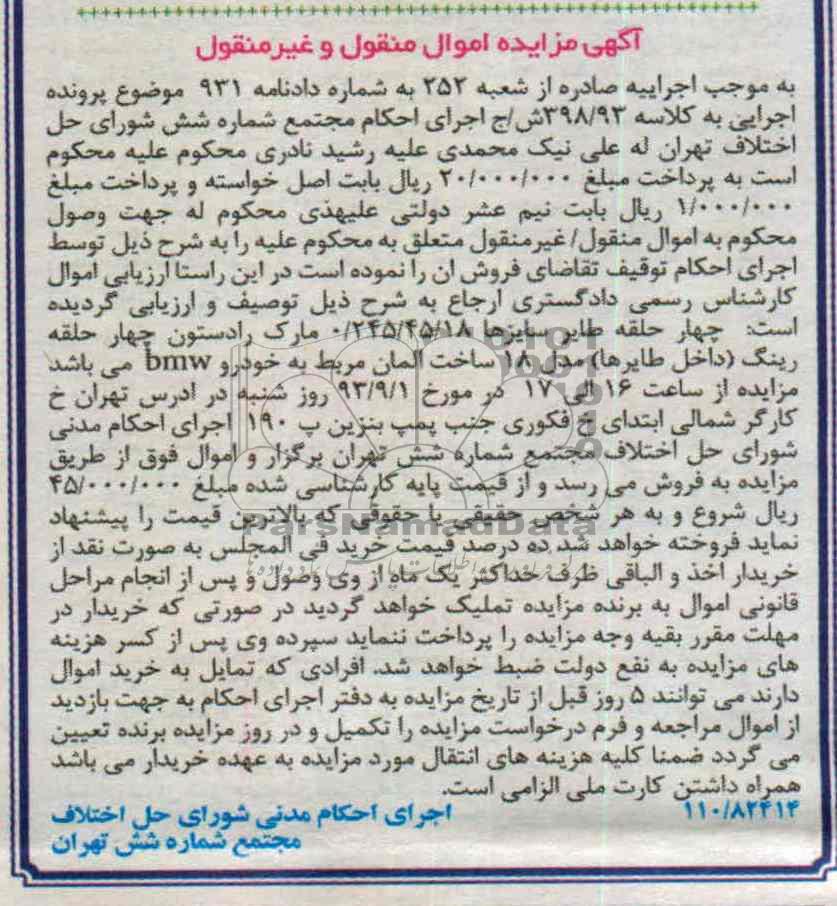 آگهی مزایده اموال منقول و غیرمنقول
به موجب اجراییه صادره از شعبه ۲۵۲ به شماره دادنامه ۹۳۱ موضوع پرونده
اجرایی به کلاسه ۳۹۸/۹۳ش/ج اجرای احکام مجتمع شماره شش شورای حل
اختلاف تهران له علی نیک محمدی علیه رشید نادری محکوم علیه محکوم
است به پرداخت مبلغ ۲۰/۰۰۰/۰۰۰ ریال بابت اصل خواسته و پرداخت مبلغ
۱/۰۰۰/۰۰۰ ریال بابت نیم عشر دولتی علیهذی محکوم له جهت وصول
محکوم به اموال منقول/ غیرمنقول متعلق به محکوم علیه را به شرح ذیل توسط
اجرای احکام توقیف تقاضای فروش ان را نموده است در این راستا ارزیابی اموال
کارشناس رسمی دادگستری ارجاع به شرح ذیل توصیف و ارزیابی گردیده
است: چهار حلقه طایر سایزها ۰/۲۴۵/۴۵/۱۸ مارک رادستون چهار حلقه
رینگ (داخل طایرها) مدل ۱۸ ساخت المان مربط به خودرو bmw می باشد
مزایده از ساعت ۱۶ الی ۱۷ در مورخ ۹۳/۹/۱ روز شنبه در ادرس تهران خ
کارگر شمالی ابتدای خ فکوری جنب پمپ بنزین پ ۱۹۰ اجرای احکام مدنی
شورای حل اختلاف مجتمع شماره شش تهران برگزار و اموال فوق از طریق
مزایده به فروش می رسد و از قیمت پایه کارشناسی شده مبلغ ۴۵/۰۰۰/۰۰۰
ریال شروع و به هر شخص حقیقی یا حقوقی که بالاترین قیمت را پیشنهاد
نماید فروخته خواهد شد ده درصد قیمت خرید فی المجلس به صورت نقد از
خریدار اخذ و الباقی ظرف حداکثر یک ماه از وی وصول و پس از انجام مراحل
قانونی اموال به برنده مزایده تملیک خواهد گردید در صورتی که خریدار در
مهلت مقرر بقیه وجه مزایده را پرداخت ننماید سپرده وی پس از کسر هزینه
های مزایده به نفع دولت ضبط خواهد شد. افرادی که تمایل به خرید اموال
دارند می توانند ۵ روز قبل از تاریخ مزایده به دفتر اجرای احکام به جهت بازدید
از اموال مراجعه و فرم درخواست مزایده را تکمیل و در روز مزایده برنده تعیین
می گردد ضمنا کلیه هزینه های انتقال مورد مزایده به عهده خریدار می باشد
همراه داشتن کارت ملی الزامی است.
۱۱۰/۸۲۴۱۴ اجرای احکام مدنی شورای حل اختلاف
مجتمع شماره شش تهران
ParsNamadData